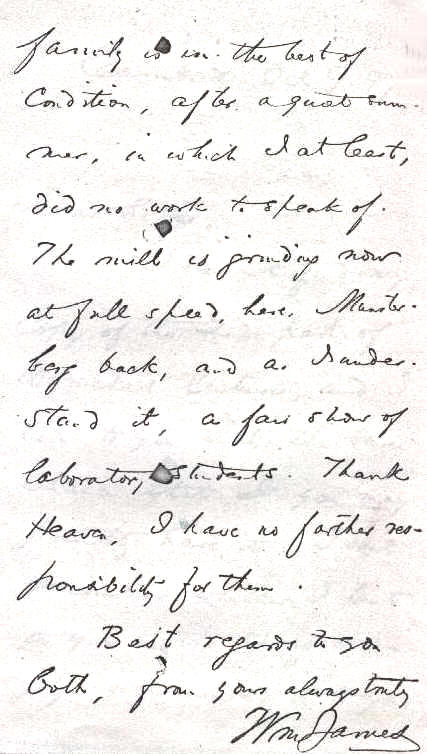 family is in the best of
Condition, after a quiet sum-
mer, in which I at least,
did no work to speak of.
The mill is grinding now
at full speed, here, Münster-
berg back, and as I under-
stand it, a fair show of
laboratory students. Thank
Heaven, I have no farther res-
ponsibility for them.
Best regards to you
both, from yours always truly
Wm James